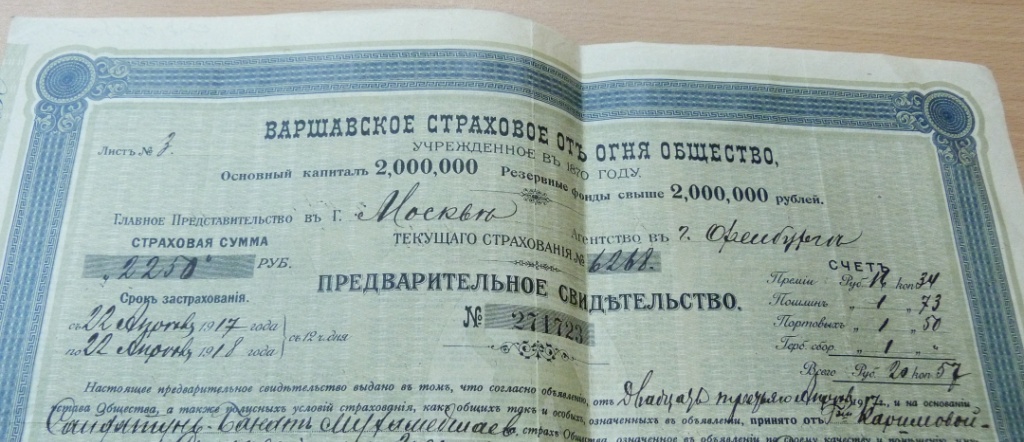 ВАРШАВСКОЕ СТРАХОВОЕ ОТЪ ОГНЯ ОБЩЕСТВО,
Листъ № 3.
УЧРЕЖДЕННОЕ ВЪ 1870 ГОДУ.
Основный капиталъ 2,000,000 Резервные фонды свыше 2,000,000 рублей.
Главное Представительство въ г. Москвѣ Агентство въ г. Оренбургѣ
СТРАХОВАЯ СУММА
ТЕКУЩАГО СТРАХОВАНІЯ № 6268.
"2250" РУБ.
СЧЕТЪ
ПРЕДВАРИТЕЛЬНОЕ СВИДѢТЕЛЬСТВО.
Преміи Руб. 16 коп 34
Срокъ застрахованія.
№ 271723
Пошлинъ " 1 " 73
съ 22 1917 года
Портовыхъ " 1 " 50
по 22 1918 года
съ 12 ч. дня
Герб. сбор. " 1 " "
Всего Руб. 20 коп 57
Настоящее предварительное свидѣтельство выдано въ томъ, что согласно объявленію, отъ Двадцать третьяго 1917 г., и на основаніи
устава Общества, а также полисныхъ условій страхованія, какъ общихъ такъ и особыхъ, означенныхъ въ объявленіи, принято отъ Каримовой
въ страхъ Обществомъ